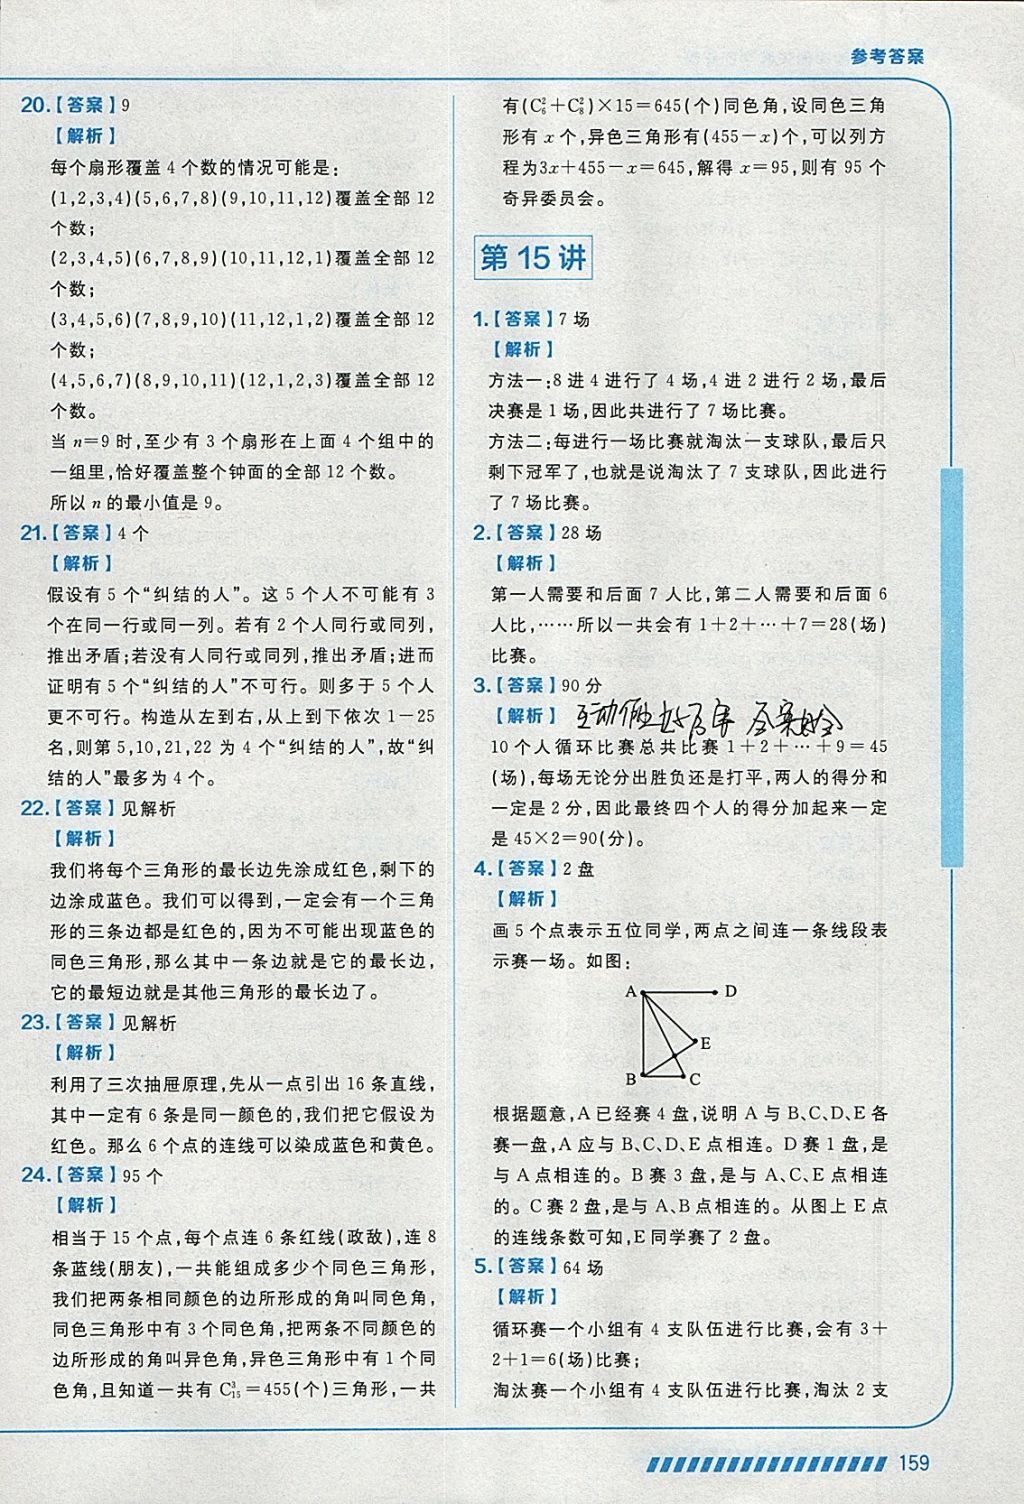 参考答案
20.【答案】9
【解析】
每个扇形覆盖 4 个数的情况可能是:
(1,2,3,4)(5,6,7,8)(9,10,11,12)覆盖全部 12
个数;
(2,3,4,5)(6,7,8,9)(10,11,12,1)覆盖全部 12
个数;
(3,4,5,6)(7,8,9,10)(11,12,1,2)覆盖全部 12
个数;
(4,5,6,7)(8,9,10,11)(12,1,2,3)覆盖全部 12
个数。
当 n=9 时,至少有 3 个扇形在上面 4 个组中的
一组里,恰好覆盖整个钟面的全部 12 个数。
所以 n 的最小值是 9。
21.【答案】4 个
【解析】
假设有 5 个“纠结的人”。这 5 个人不可能有 3
个在同一行或同一列。若有 2 个人同行或同列,
推出矛盾;若没有人同行或同列,推出矛盾;进而
证明有 5 个“纠结的人”不可行。则多于 5 个人
更不可行。构造从左到右,从上到下依次 1－25
名,则第 5,10,21,22 为 4 个“纠结的人”,故“纠
结的人”最多为 4 个。
22.【答案】见解析
【解析】
我们将每个三角形的最长边先涂成红色,剩下的
边涂成蓝色。我们可以得到,一定会有一个三角
形的三条边都是红色的,因为不可能出现蓝色的
同色三角形,那么其中一条边就是它的最长边,
它的最短边就是其他三角形的最长边了。
23.【答案】见解析
【解析】
利用了三次抽屉原理,先从一点引出 16 条直线,
其中一定有 6 条是同一颜色的,我们把它假设为
红色。那么 6 个点的连线可以染成蓝色和黄色。
24.【答案】95 个
【解析】
相当于 15 个点,每个点连 6 条红线(政敌),连 8
条蓝线(朋友),一共能组成多少个同色三角形,
我们把两条相同颜色的边所形成的角叫同色角,
同色三角形中有 3 个同色角,把两条不同颜色的
边所形成的角叫异色角,异色三角形中有 1 个同
色角,且知道一共有 C³₁₅=455(个)三角形,一共
有(C²₆+C²₈)×15=645(个)同色角,设同色三角
形有 x 个,异色三角形有(455－x)个,可以列方
程为3x+455－x=645,解得 x=95,则有 95 个
奇异委员会。
第 15 讲
1.【答案】7 场
【解析】
方法一:8 进 4 进行了 4 场,4 进 2 进行 2 场,最后
决赛是 1 场,因此共进行了 7 场比赛。
方法二:每进行一场比赛就淘汰一支球队,最后只
剩下冠军了,也就是说淘汰了 7 支球队,因此进行
了 7 场比赛。
2.【答案】28 场
【解析】
第一人需要和后面 7 人比,第二人需要和后面 6
人比,……所以一共会有 1+2+…+7=28(场)
比赛。
3.【答案】90 分
【解析】
10 个人循环比赛总共比赛 1+2+…+9=45
(场),每场无论分出胜负还是打平,两人的得分和
一定是 2 分,因此最终四个人的得分加起来一定
是 45×2=90(分)。
4.【答案】2 盘
【解析】
画 5 个点表示五位同学,两点之间连一条线段表
示赛一场。如图:
A
D
E
B
C
根据题意,A 已经赛 4 盘,说明 A 与 B、C、D、E 各
赛一盘,A 应与 B、C、D、E 点相连。D 赛 1 盘,是
与 A 点相连的。B 赛 3 盘,是与 A、C、E 点相连
的。C 赛 2 盘,是与 A、B 点相连的。从图上 E 点
的连线条数可知,E 同学赛了 2 盘。
5.【答案】64 场
【解析】
循环赛一个小组有 4 支队伍进行比赛,会有 3+
2+1=6(场)比赛;
淘汰赛一个小组有 4 支队伍进行比赛,淘汰 2 支
159